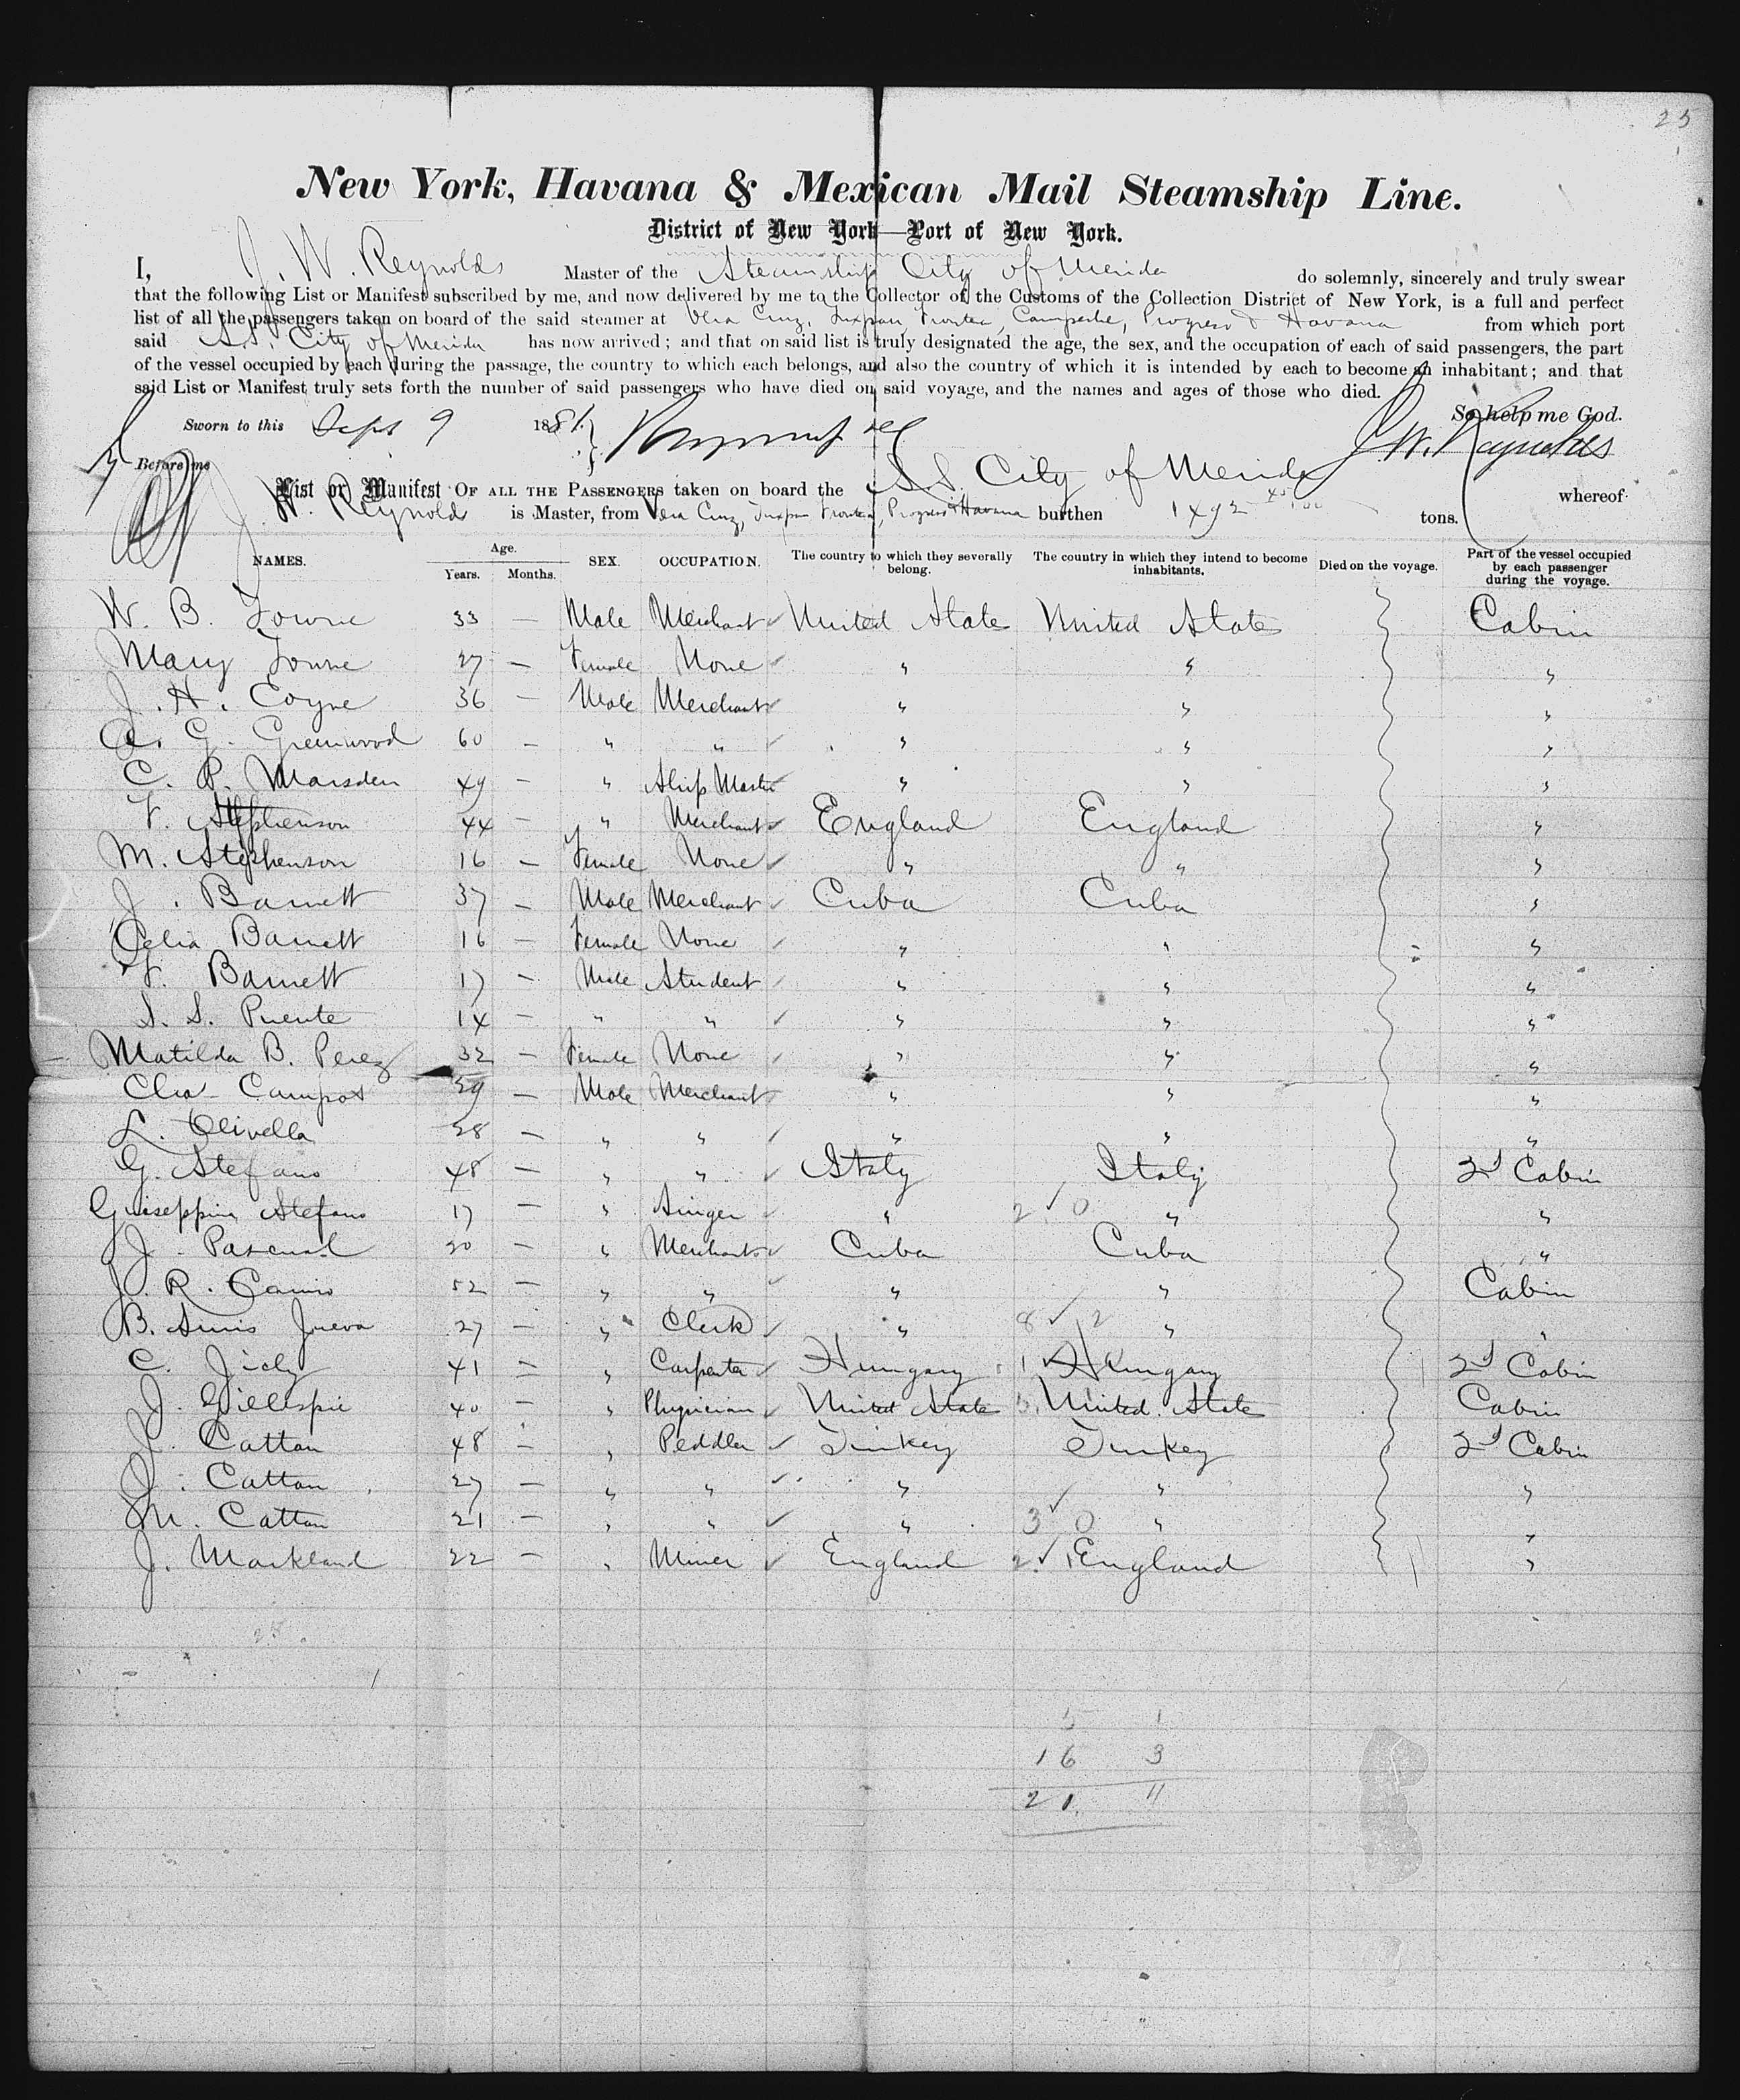 23
New York, Havana & Mexican Mail Steamship Line.
District of New York—Port of New York.
I, J. W. Reynolds Master of the Steamship City of Merida do solemnly, sincerely and truly swear
that the following List or Manifest subscribed by me, and now delivered by me to the Collector of the Customs of the Collection District of New York, is a full and perfect
list of all the passengers taken on board of the said steamer at Vera Cruz, Tuxpan, Frontera, Campeche, Progreso & Havana from which port
said S.S. City of Merida has now arrived; and that on said list is truly designated the age, the sex, and the occupation of each of said passengers, the part
of the vessel occupied by each during the passage, the country to which each belongs, and also the country of which it is intended by each to become an inhabitant; and that
said List or Manifest truly sets forth the number of said passengers who have died on said voyage, and the names and ages of those who died.
So help me God.
Sworn to this Sept 9 1881. J. W. Reynolds
Before me
List or Manifest OF ALL THE PASSENGERS taken on board the S.S. City of Merida whereof
J. W. Reynolds is Master, from Vera Cruz, Tuxpan Frontera, Progreso & Havana burthen 1492 45/100 tons.
NAMES. Age. Years. Months. SEX. OCCUPATION. The country to which they severally belong. The country in which they intend to become inhabitants. Died on the voyage. Part of the vessel occupied by each passenger during the voyage.
W. B. Towne 33 — Male Merchant United State United State Cabin
Mary Towne 27 — Female None " " "
J. H. Coyne 36 — Male Merchant " " "
A. G. Greenwood 60 — " " " " "
C. P. Marsden 49 — " Ship Master " " "
F. Stephenson 44 — " Merchant England England "
M. Stephenson 16 — Female None " " "
J. Barnett 37 — Male Merchant Cuba Cuba "
Celia Barnett 16 — Female None " " "
F. Barnett 17 — Male Student " " "
S. S. Puente 14 — " " " " "
Matilda B. Perez 32 — Female None " " "
Campos 29 — Male Merchant " " "
L. Olivella 28 — " " " " "
G. Stefano 48 — " " Italy Italy 2d Cabin
Giuseppina Stefano 17 — " Singer " 2 ✓ 0 " "
J. Pascual 20 — " Merchant Cuba Cuba "
J. R. 52 — " " " " Cabin
B. 27 — " Clerk " 8 ✓ 2 " "
C. 41 — " Carpenter Hungary 1 ✓ Hungary 2d Cabin
J. Gillespie 40 — " Physician United State 5 United State Cabin
J. Cattan 48 — " Peddler Turkey Turkey 2d Cabin
J. Cattan 27 — " " " " "
M. Cattan 21 — " " " 3 ✓ 0 " "
J. Markland 22 — " Miner England 2 ✓ 1 England "
25
5 1
16 3
21 11